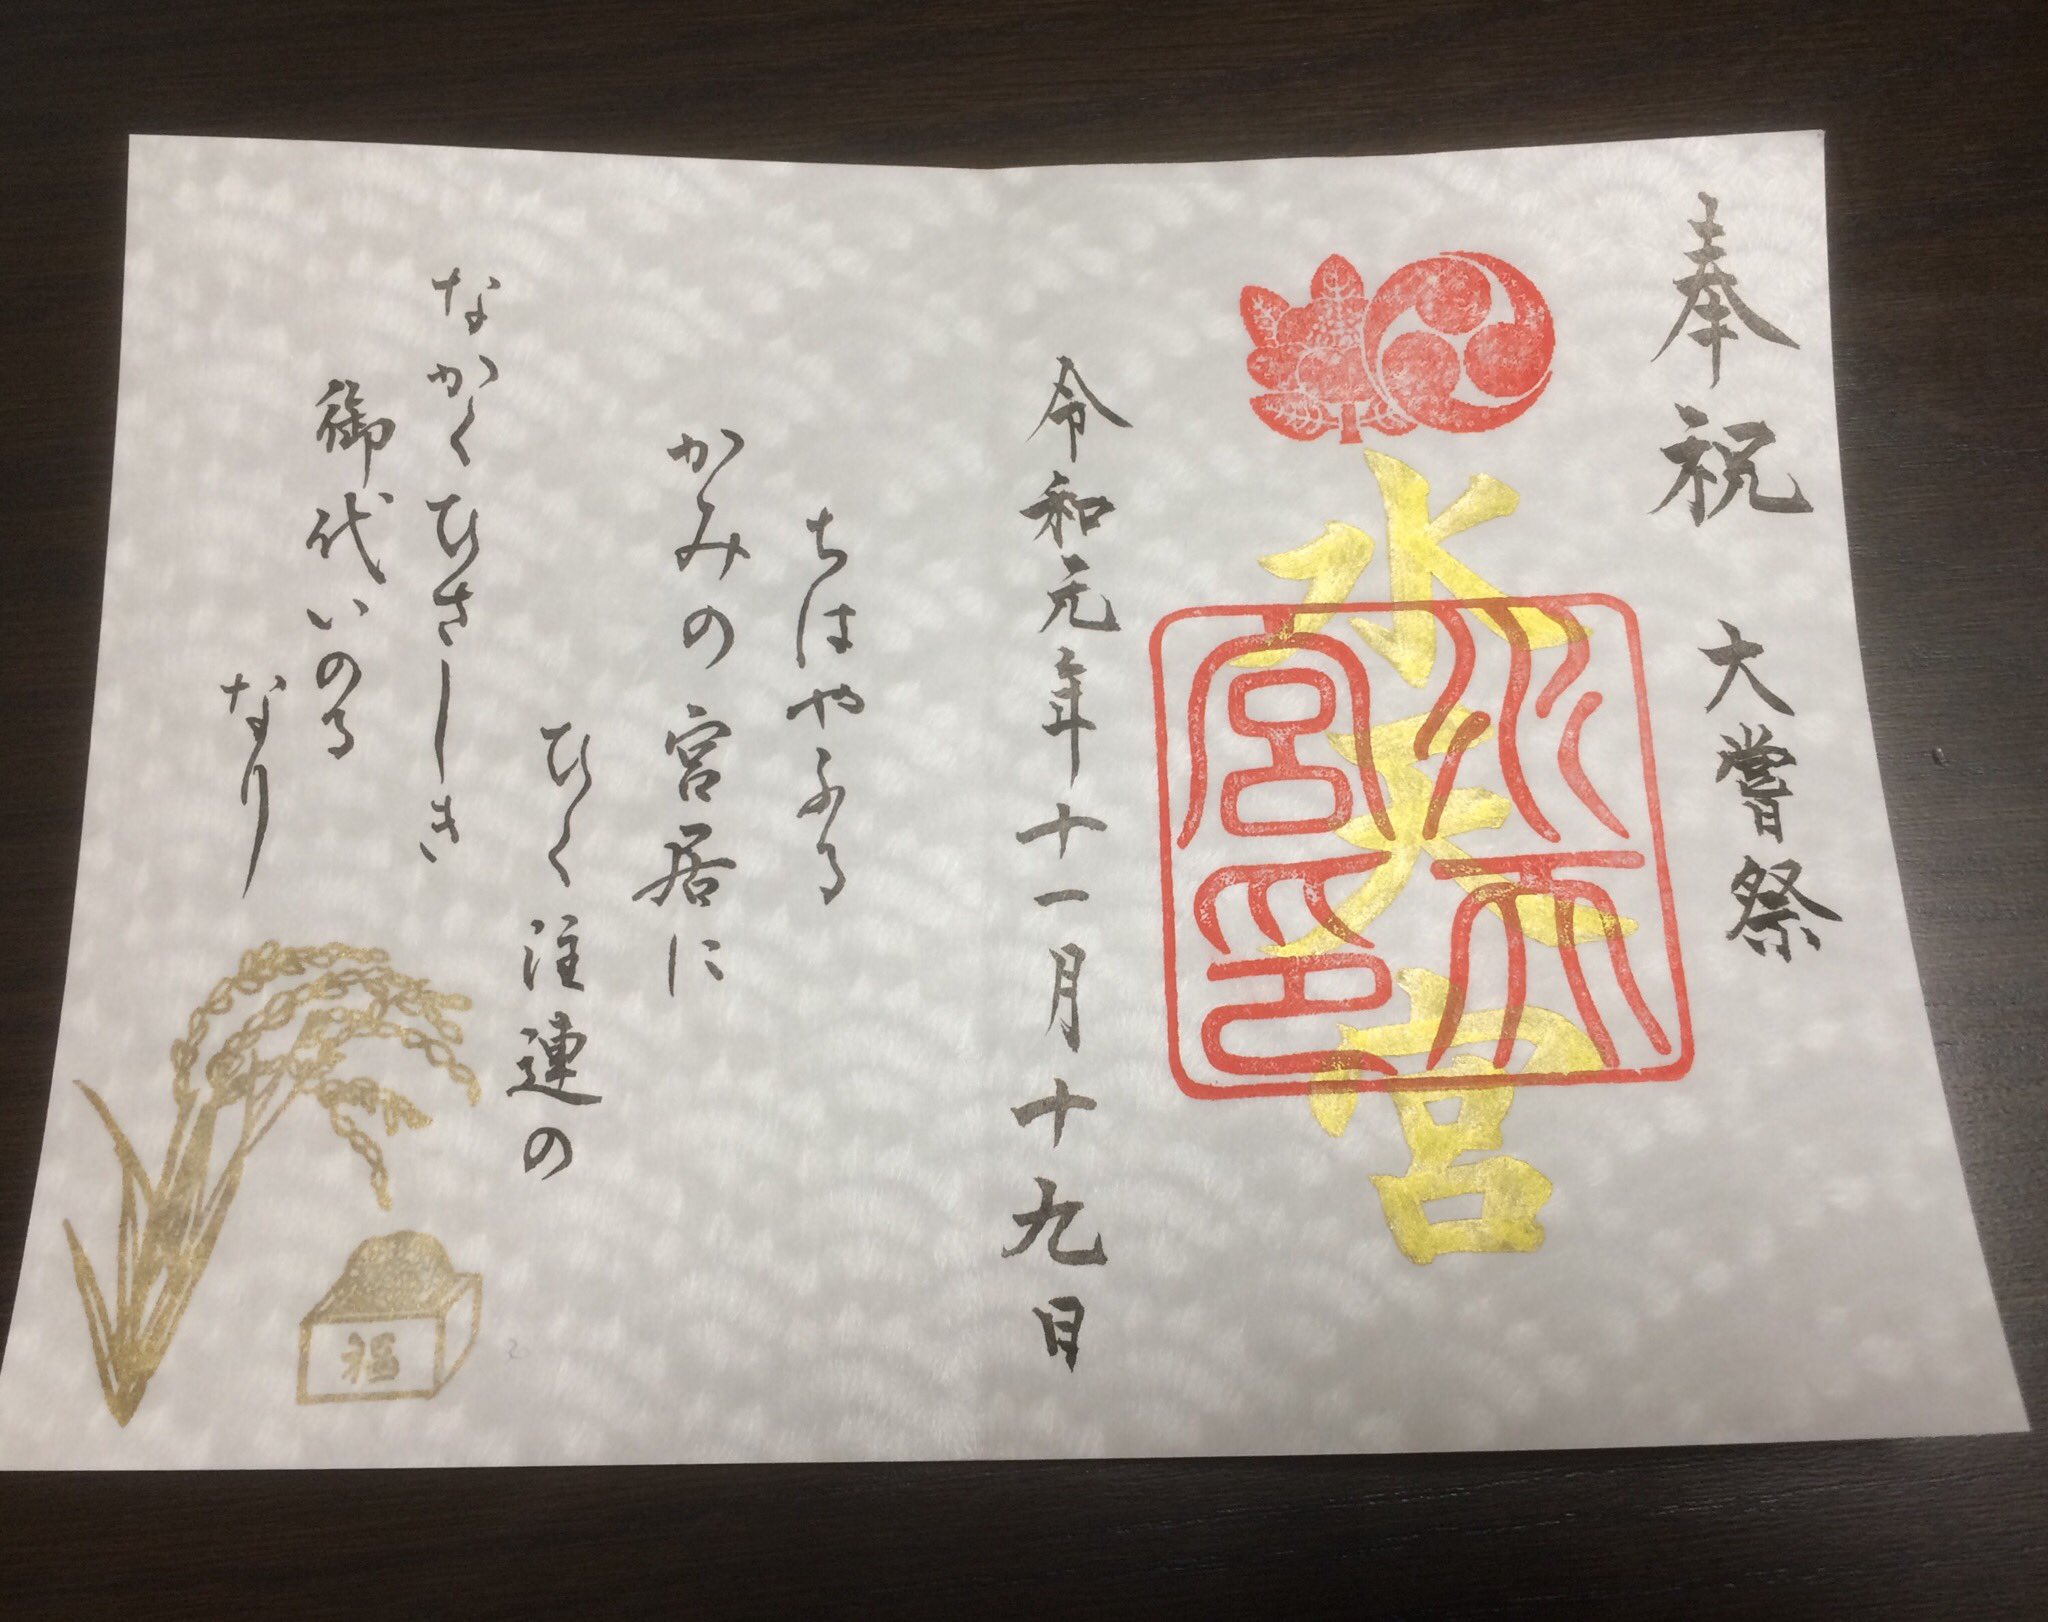 奉祝
大嘗祭
水天宮
水天宮印
令和元年十一月十九日
ちはやふる
かみの宮居に
ひく注連の
なかくひさしき
御代いのる
なり
福